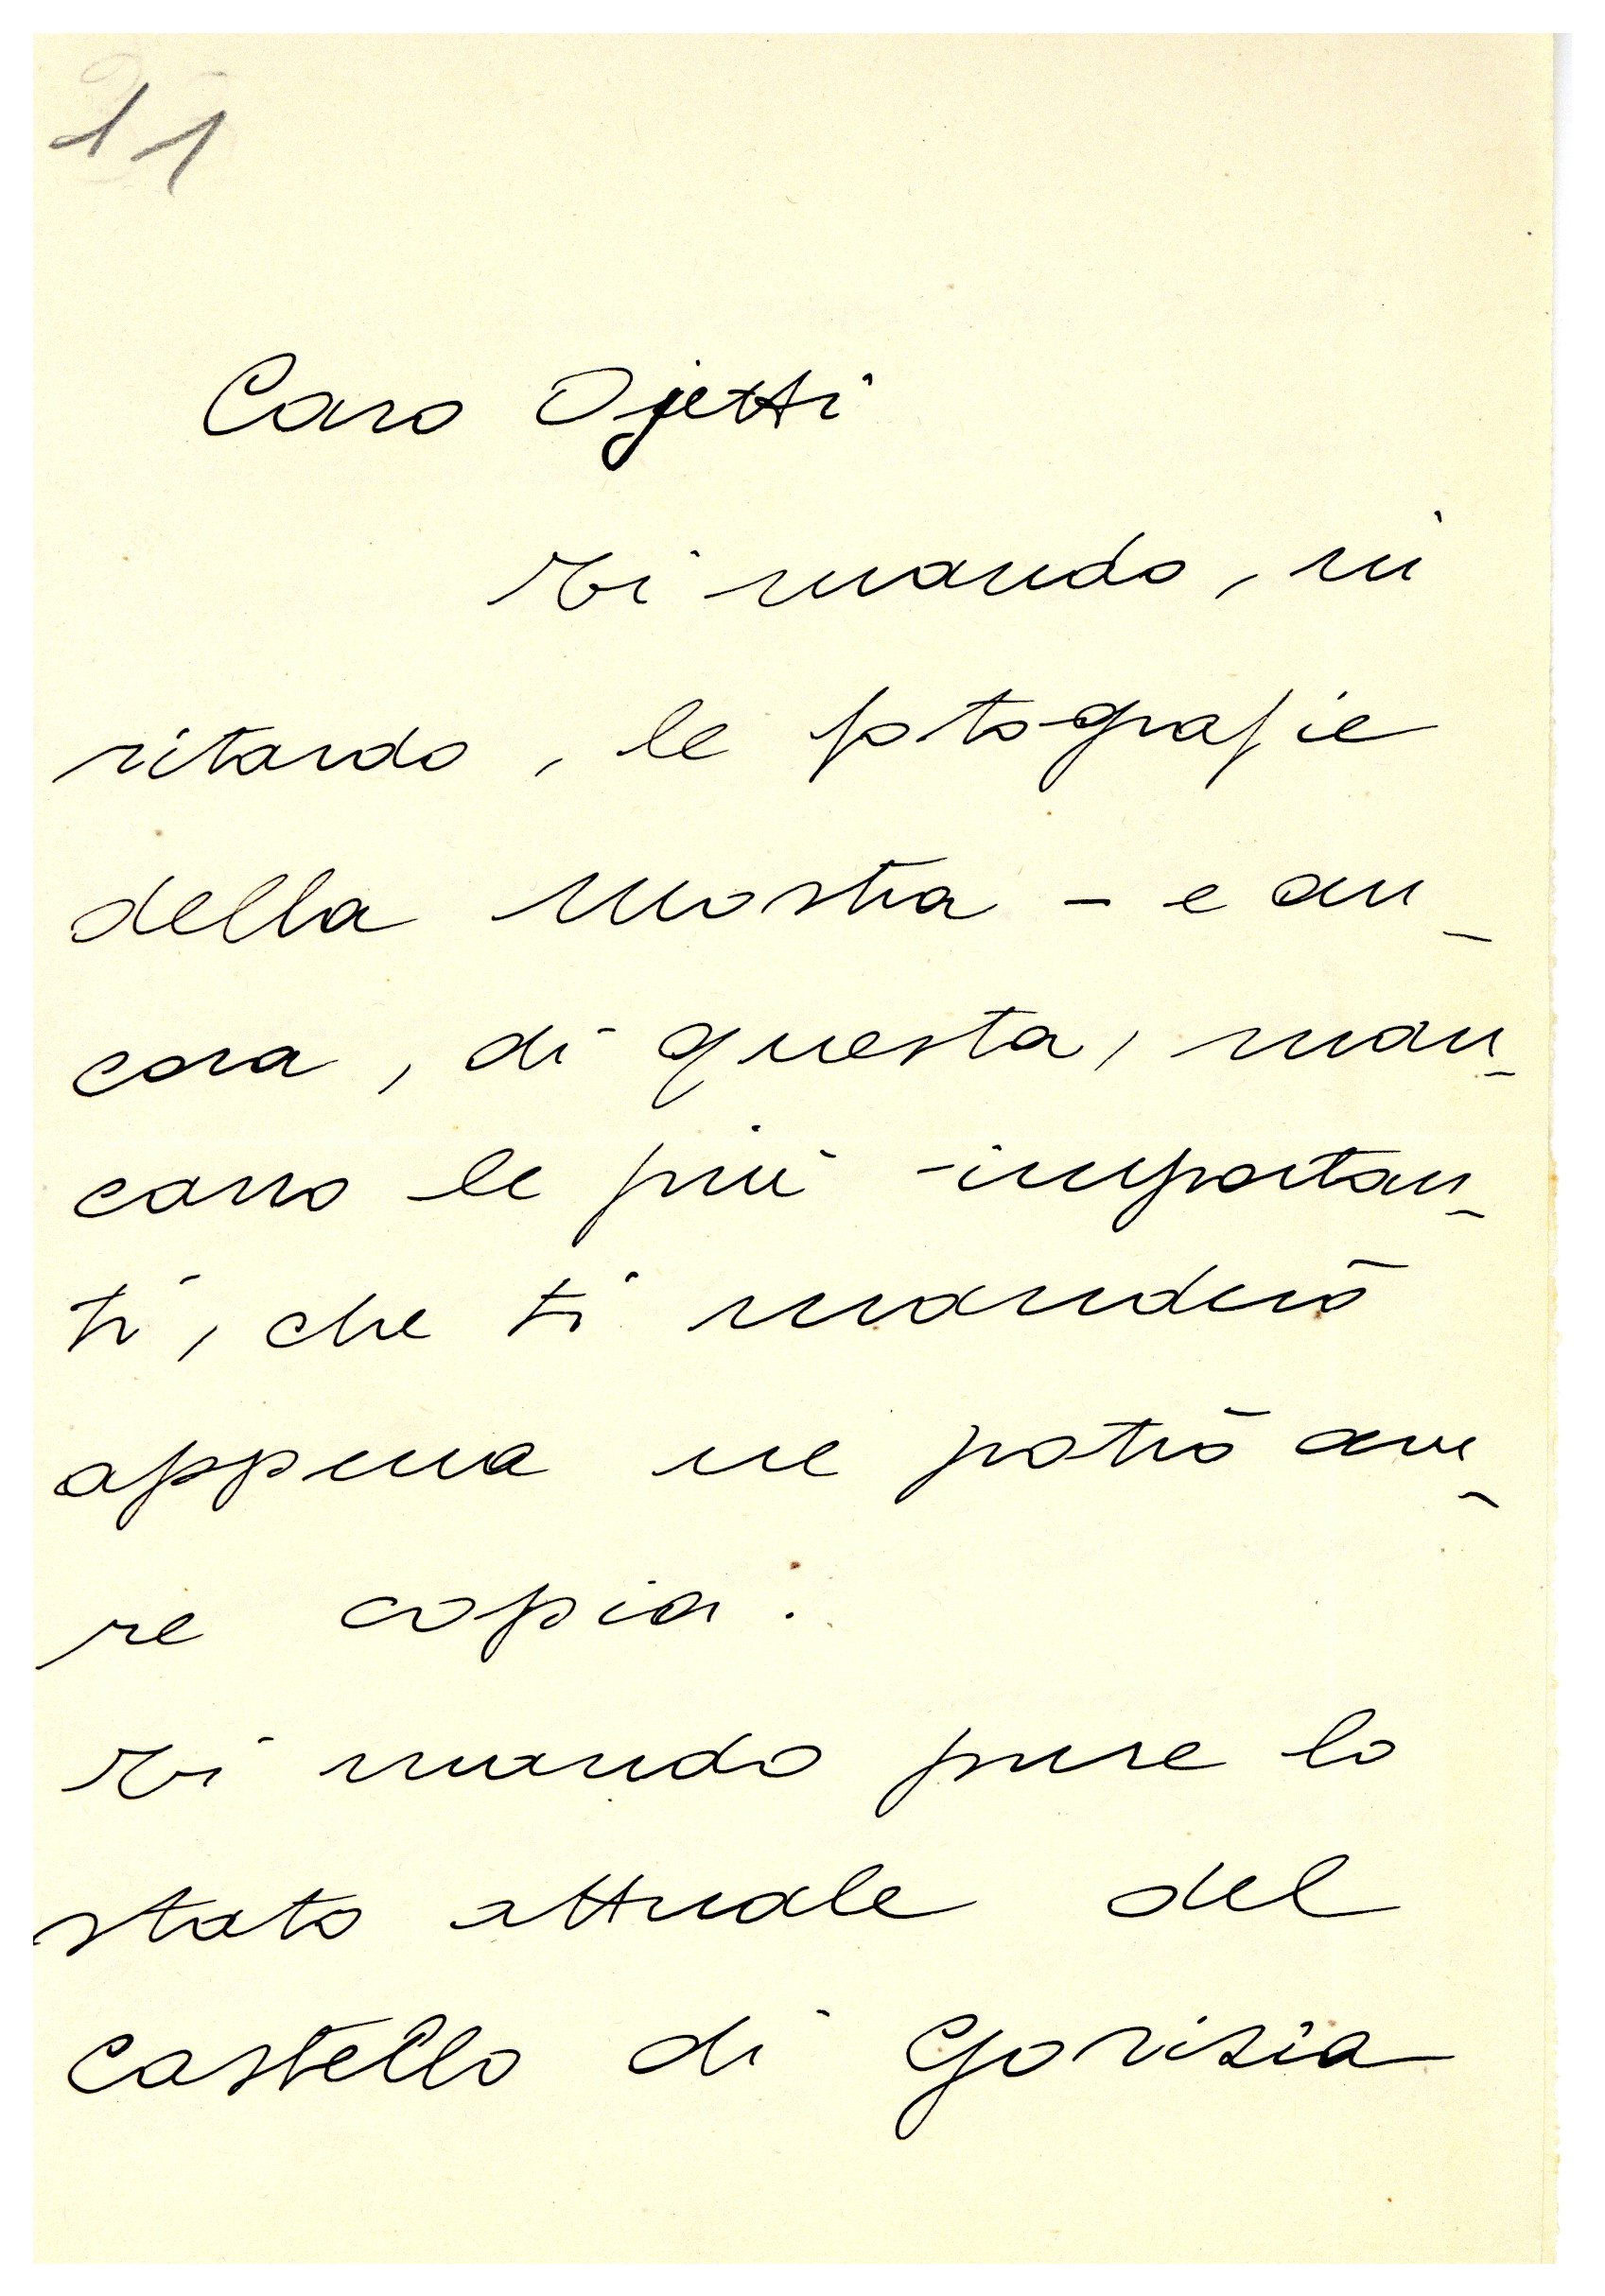 11
Caro Ojetti
ti mando, in
ritardo, le fotografie
della Mostra - e an_
cora, di questa, man_
cano le più importan_
ti, che ti manderò
appena ne potrò ave_
re copia.
ti mando pure lo
stato attuale del
Castello di Gorizia